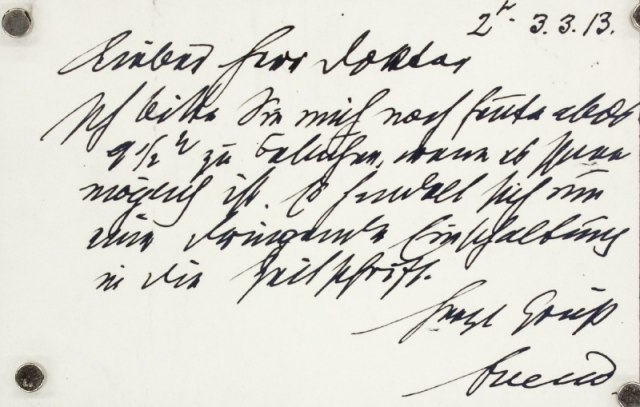 2h. 3.3.13.
Lieber Herr Doktor
Ich bitte Sie mich noch heute abds
9 1/2 h zu besuchen, wenn es Ihnen
möglich ist. Es handelt sich um
eine dringende Einschaltung
in die Zeitschrift.
Herzl Gruß
Freud